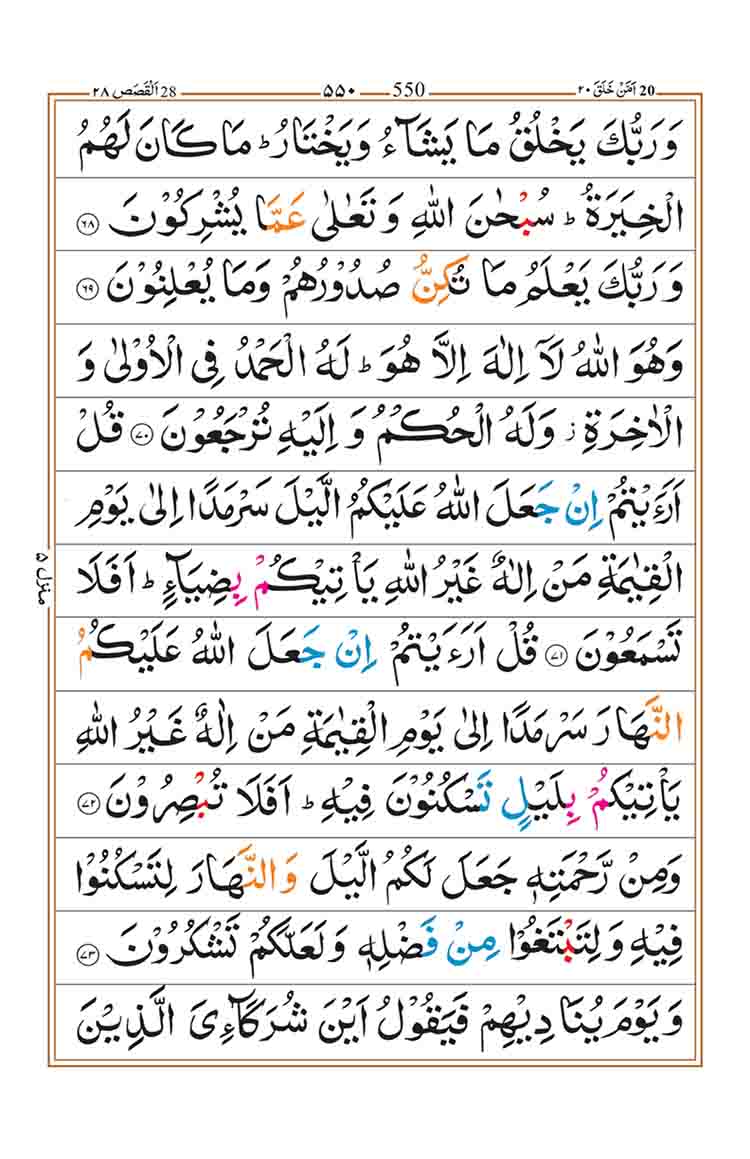 20 اَمَّنْ خَلَقَ ۲۰ 550 ۵۵۰ 28 اَلْقَصَص ۲۸
وَ رَبُّكَ يَخْلُقُ مَا يَشَآءُ وَيَخْتَارُ ؕ مَا كَانَ لَهُمُ
الْخِيَرَةُ ؕ سُبْحٰنَ اللّٰهِ وَ تَعٰلٰى عَمَّا يُشْرِكُوْنَ ۝۶۸
وَ رَبُّكَ يَعْلَمُ مَا تُكِنُّ صُدُوْرُهُمْ وَمَا يُعْلِنُوْنَ ۝۶۹
وَهُوَ اللّٰهُ لَاۤ اِلٰهَ اِلَّا هُوَ ؕ لَهُ الْحَمْدُ فِى الْاُوْلٰى وَ
الْاٰخِرَةِ ز وَلَهُ الْحُكْمُ وَ اِلَيْهِ تُرْجَعُوْنَ ۝۷۰ قُلْ
اَرَءَيْتُمْ اِنْ جَعَلَ اللّٰهُ عَلَيْكُمُ الَّيْلَ سَرْمَدًا اِلٰى يَوْمِ
الْقِيٰمَةِ مَنْ اِلٰهٌ غَيْرُ اللّٰهِ يَاْتِيْكُمْ بِضِيَآءٍ ؕ اَفَلَا
تَسْمَعُوْنَ ۝۷۱ قُلْ اَرَءَيْتُمْ اِنْ جَعَلَ اللّٰهُ عَلَيْكُمُ
النَّهَارَ سَرْمَدًا اِلٰى يَوْمِ الْقِيٰمَةِ مَنْ اِلٰهٌ غَيْرُ اللّٰهِ
يَاْتِيْكُمْ بِلَيْلٍ تَسْكُنُوْنَ فِيْهِ ؕ اَفَلَا تُبْصِرُوْنَ ۝۷۲
وَمِنْ رَّحْمَتِهٖ جَعَلَ لَكُمُ الَّيْلَ وَالنَّهَارَ لِتَسْكُنُوْا
فِيْهِ وَ لِتَبْتَغُوْا مِنْ فَضْلِهٖ وَ لَعَلَّكُمْ تَشْكُرُوْنَ ۝۷۳
وَ يَوْمَ يُنَادِيْهِمْ فَيَقُوْلُ اَيْنَ شُرَكَآءِىَ الَّذِيْنَ
منزل ۵